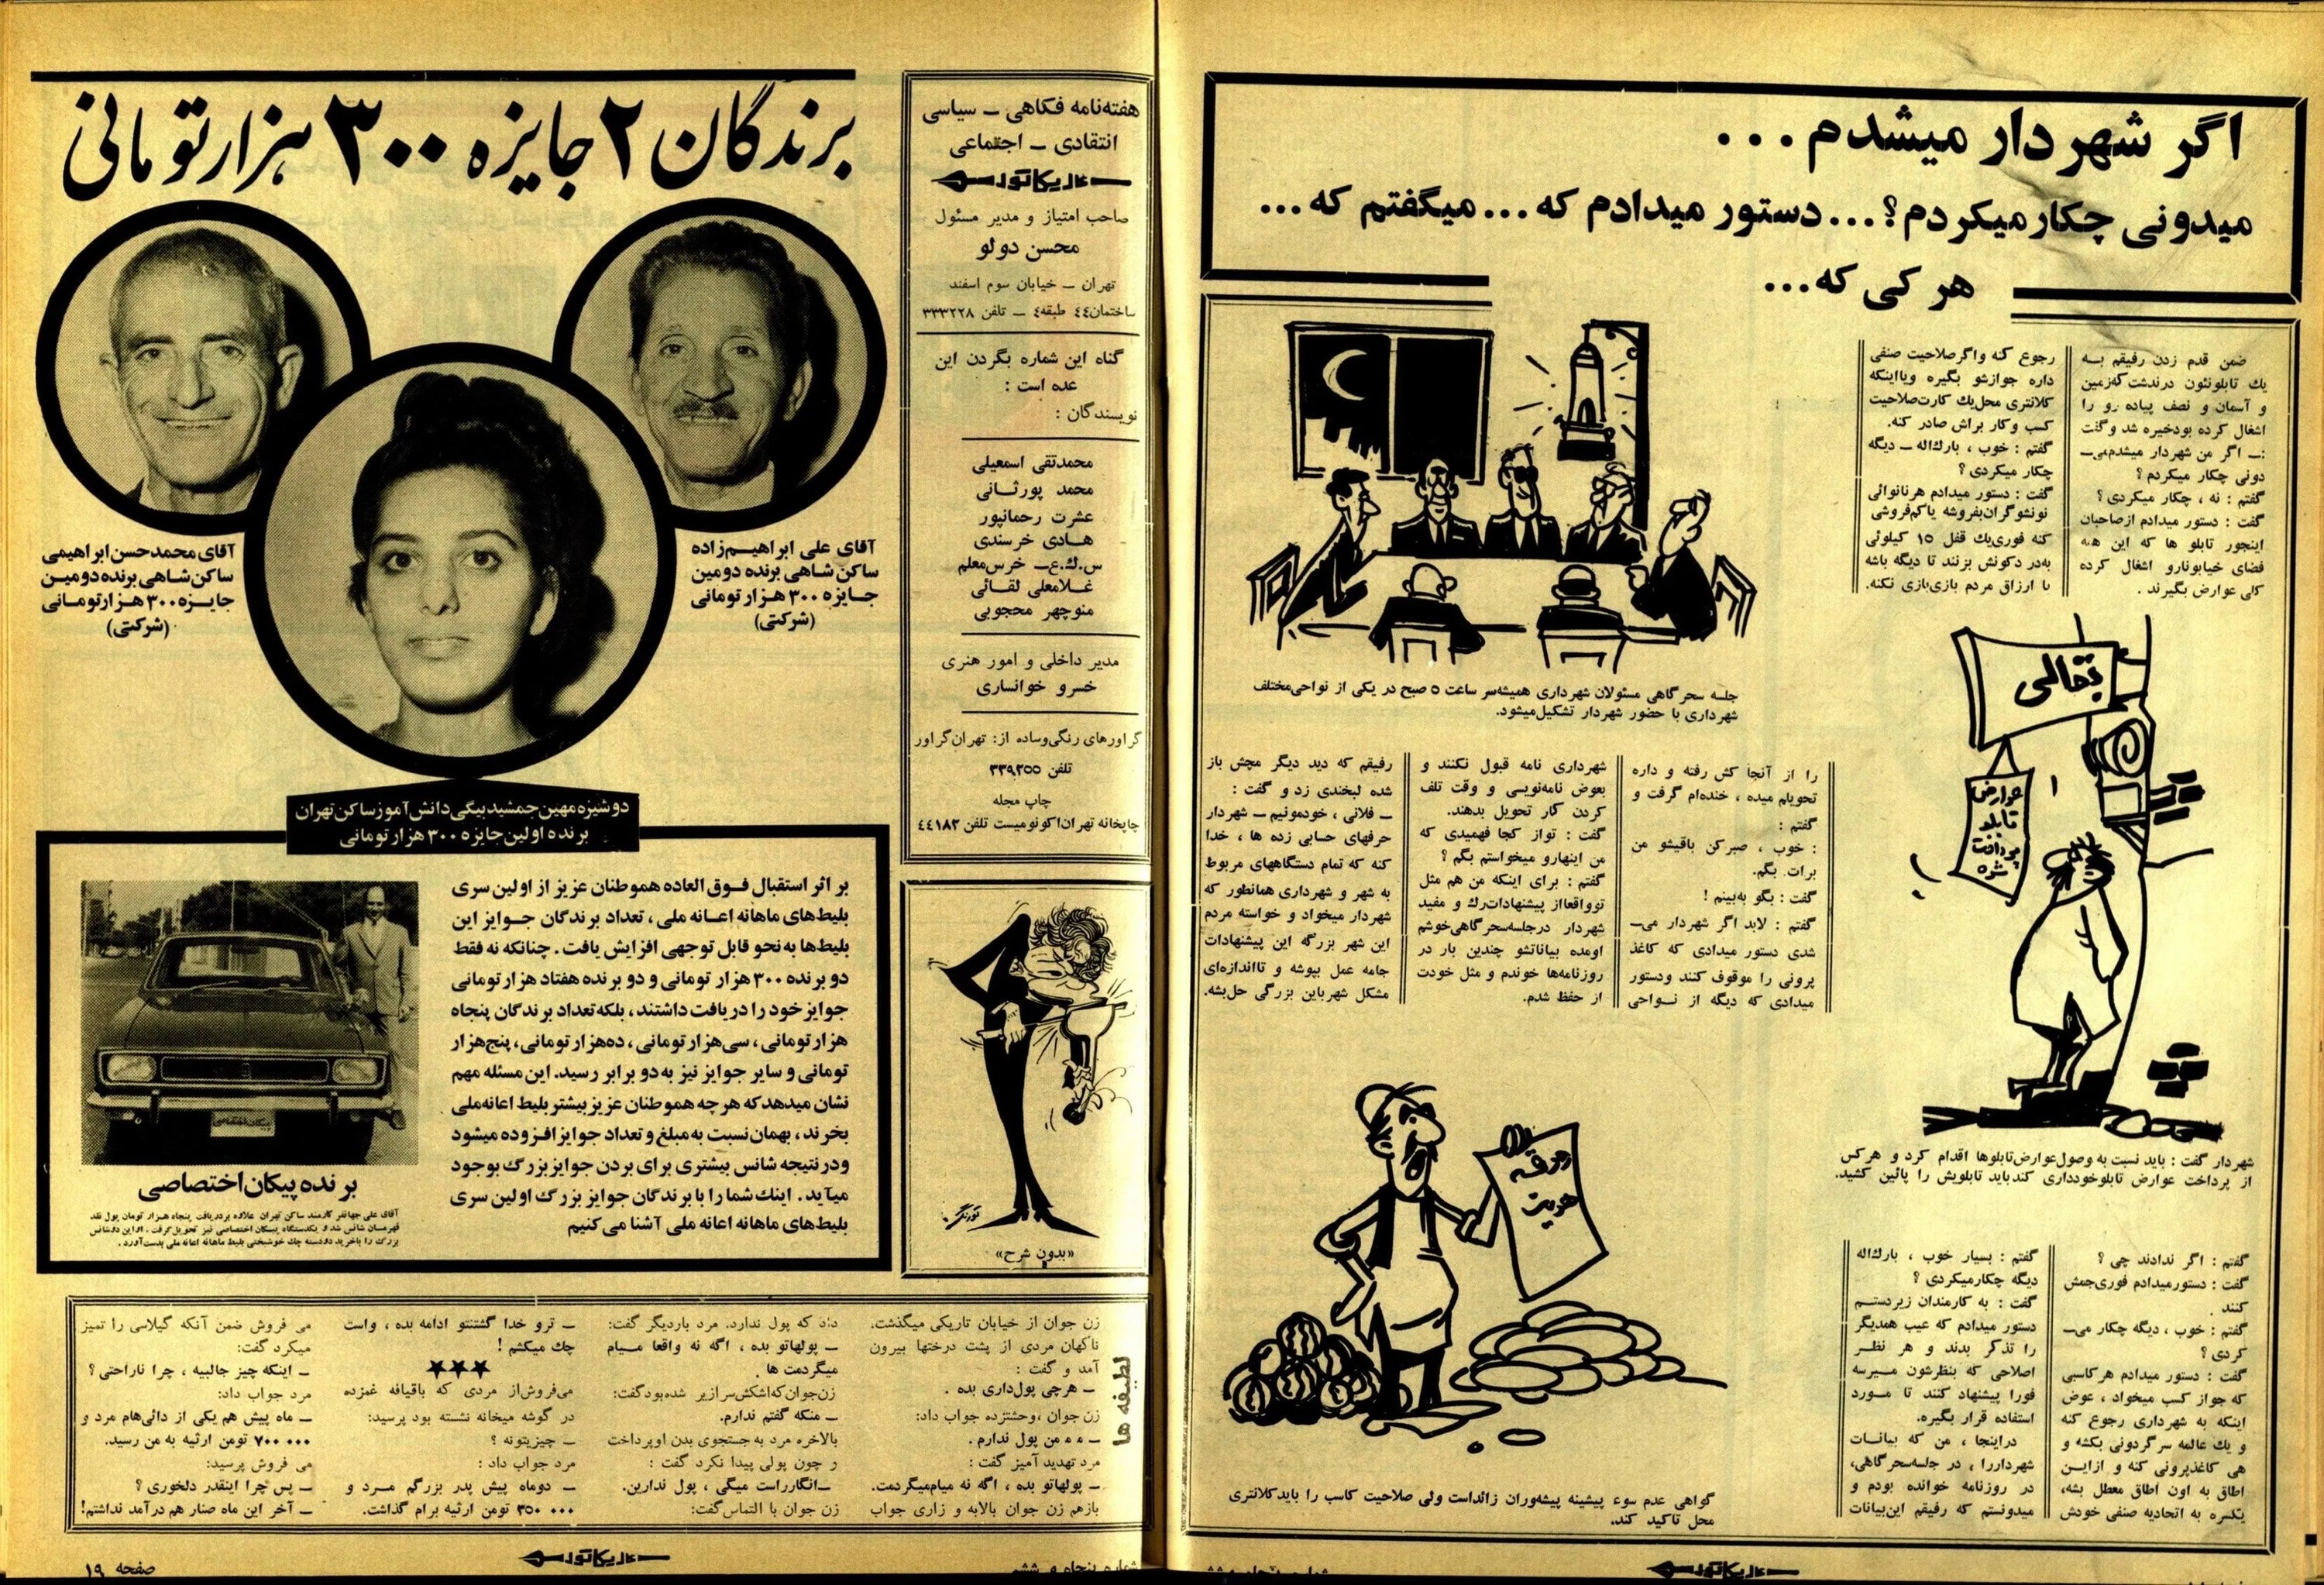 اگر شهردار میشدم ...
میدونی چکار میکردم؟... دستور میدادم که... میگفتم که...
هر کی که...
ضمن قدم زدن رفیقم به
یك تابلونئون درندشت که زمین
و آسمان و نصف پیاده رو را
اشغال کرده بود خیره شد و گفت
:ــ اگر من شهردار میشدم می‌ــ
دونی چکار میکردم؟
گفتم : نه ، چکار میکردی؟
گفت : دستور میدادم از صاحبان
اینجور تابلو ها که این همه
فضای خیابونارو اشغال کرده
کلی عوارض بگیرند .
بقالی
عوارض
تابلو
پرداخت
شده
شهردار گفت : باید نسبت به وصول عوارض تابلوها اقدام کرد و هر کس
از پرداخت عوارض تابلو خودداری کند باید تابلویش را پائین کشید.
گفتم : اگر ندادند چی ؟
گفت : دستور میدادم فوری جمش
کنند .
گفتم : خوب ، دیگه چکار می‌ــ
کردی ؟
گفت : دستور میدادم هر کاسبی
که جواز کسب میخواد ، عوض
اینکه به شهرداری رجوع کنه
و یك عالمه سر گردونی بکشه و
هی کاغذپرونی کنه و از این
اطاق به اون اطاق معطل بشه،
یکسره به اتحادیه صنفی خودش
رجوع کنه واگر صلاحیت صنفی
داره جوازشو بگیره و یا اینکه
کلانتری محل یك کارت صلاحیت
کسب و کار براش صادر کنه.
گفتم : خوب ، بارك‌اله ــ دیگه
چکار میکردی ؟
گفت : دستور میدادم هر نانوائی
نونشو گران بفروشه یا کم‌فروشی
کنه فوری یك قفل ۱۵ کیلوئی
به‌در دکونش بزنند تا دیگه باشه
با ارزاق مردم بازی بازی نکنه.
گفتم : بسیار خوب ، بارك‌اله
دیگه چکار میکردی ؟
گفت : به کارمندان زیردستم
دستور میدادم که عیب همدیگر
را تذکر بدند و هر نظر
اصلاحی که بنظرشون میرسه
فورا پیشنهاد کنند تا مورد
استفاده قرار بگیره.
در اینجا ، من که بیانات
شهردار را ، در جلسه سحر گاهی،
در روزنامه خوانده بودم و
میدونستم که رفیقم این بیانات
جلسه سحر گاهی مسئولان شهرداری همیشه سر ساعت ۵ صبح در یکی از نواحی مختلف
شهرداری با حضور شهردار تشکیل میشود.
را از آنجا کش رفته و داره
تحویلم میده ، خنده‌ام گرفت و
گفتم :
: خوب ، صبر کن باقیشو من
برات بگم.
گفت : بگو به‌بینم !
گفتم : لابد اگر شهردار می‌ــ
شدی دستور میدادی که کاغذ
پرونی را موقوف کنند و دستور
میدادی که دیگه از نواحی
شهرداری نامه قبول نکنند و
بعوض نامه‌نویسی و وقت تلف
کردن کار تحویل بدهند.
گفت : تو از کجا فهمیدی که
من اینهارو میخواستم بگم ؟
گفتم : برای اینکه من هم مثل
تو واقعا از پیشنهادات رك و مفید
شهردار در جلسه سحر گاهی خوشم
اومده بیاناتشو چندین بار در
روزنامه‌ها خوندم و مثل خودت
از حفظ شدم.
رفیقم که دید دیگر مچش باز
شده لبخندی زد و گفت :
ــ فلانی ، خودمونیم ــ شهردار
حرفهای حسابی زده ها ، خدا
کنه که تمام دستگاههای مربوط
به شهر و شهرداری همانطور که
شهردار میخواد و خواسته مردم
این شهر بزرگه این پیشنهادات
جامه عمل بپوشه و تا اندازه‌ای
مشکل شهر باین بزرگی حل بشه.
ورقه
هویت
گواهی عدم سوء پیشینه پیشه‌وران زائد است ولی صلاحیت کاسب را باید کلانتری
محل تاکید کند.
کاریکاتور
هفته‌نامه فکاهی ــ سیاسی
انتقادی ــ اجتماعی
کاریکاتور
صاحب امتیاز و مدیر مسئول
محسن دولو
تهران ــ خیابان سوم اسفند
ساختمان ٤٤ طبقه ٤ ــ تلفن ۳۳۳۲۲۸
گناه این شماره بگردن این
عده است :
نویسندگان :
محمدتقی اسمعیلی
محمد پورثانی
عشرت رحمانپور
هادی خرسندی
س.ك.ع‌ــ خرس‌معلم
غلامعلی لقائی
منوچهر محجوبی
مدیر داخلی و امور هنری
خسرو خوانساری
گراورهای رنگی و ساده از: تهران گراور
تلفن ۳۳۹۲۵۵
چاپ مجله
چاپخانه تهران اکونومیست تلفن ٤٤۱۸۲
تورنگ
«بدون شرح»
برندگان ۲ جایزه ۳۰۰ هزار تومانی
آقای علی ابراهیم‌زاده
ساکن شاهی برنده دومین
جایزه ۳۰۰ هزار تومانی
(شرکتی)
آقای محمدحسن ابراهیمی
ساکن شاهی برنده دومین
جایزه ۳۰۰ هزار تومانی
(شرکتی)
دوشیزه مهین جمشید بیگی دانش آموز ساکن تهران
برنده اولین جایزه ۳۰۰ هزار تومانی
بر اثر استقبال فوق العاده هموطنان عزیز از اولین سری
بلیط‌های ماهانه اعانه ملی ، تعداد برندگان جوایز این
بلیط‌ها به نحو قابل توجهی افزایش یافت . چنانکه نه فقط
دو برنده ۳۰۰ هزار تومانی و دو برنده هفتاد هزار تومانی
جوایز خود را دریافت داشتند ، بلکه تعداد برندگان پنجاه
هزار تومانی ، سی هزار تومانی ، ده هزار تومانی ، پنج هزار
تومانی و سایر جوایز نیز به دو برابر رسید. این مسئله مهم
نشان میدهد که هر چه هموطنان عزیز بیشتر بلیط اعانه ملی
بخرند ، بهمان نسبت به مبلغ و تعداد جوایز افزوده میشود
و در نتیجه شانس بیشتری برای بردن جوایز بزرگ بوجود
میآید . اینك شما را با برندگان جوایز بزرگ اولین سری
بلیط‌های ماهانه اعانه ملی آشنا می کنیم
پیکان اختصاصی
برنده پیکان اختصاصی
آقای علی جهانفر کارمند ساکن تهران علاوه بر دریافت پنجاه هزار تومان پول نقد
قهرمان شانس شد و یکدستگاه پیکان اختصاصی نیز تحویل گرفت . او این دو شانس
بزرگ را با خرید دو دسته چك خوشبختی بلیط ماهانه اعانه ملی بدست آورد .
لطیفه ها
زن جوان از خیابان تاریکی میگذشت.
ناگهان مردی از پشت درختها بیرون
آمد و گفت :
ــ هرچی پول داری بده .
زن جوان ، وحشتزده جواب داد:
ــ م م من پول ندارم .
مرد تهدید آمیز گفت :
ــ پولهاتو بده ، اگه نه میام میگردمت.
بازهم زن جوان با لابه و زاری جواب
داد که پول ندارد. مرد بار دیگر گفت:
ــ پولهاتو بده ، اگه نه واقعا میام
میگردمت ها .
زن جوان که اشکش سرازیر شده بود گفت:
ــ منکه گفتم ندارم.
بالاخره مرد به جستجوی بدن او پرداخت
و چون پولی پیدا نکرد گفت :
ــ انگار راست میگی ، پول ندارین.
زن جوان با التماس گفت:
ــ ترو خدا گشتنتو ادامه بده ، واست
چك میکشم !
★★★
می‌فروش از مردی که با قیافه غمزده
در گوشه میخانه نشسته بود پرسید:
ــ چیزیتونه ؟
مرد جواب داد :
ــ دو ماه پیش پدر بزرگم مرد و
۳۵۰ ۰۰۰ تومن ارثیه برام گذاشت.
می فروش ضمن آنکه گیلاسی را تمیز
میکرد گفت:
ــ اینکه چیز جالبیه ، چرا ناراحتی ؟
مرد جواب داد:
ــ ماه پیش هم یکی از دائی‌هام مرد و
۷۰۰ ۰۰۰ تومن ارثیه به من رسید.
می فروش پرسید:
ــ پس چرا اینقدر دلخوری ؟
ــ آخر این ماه صنار هم درآمد نداشتم!
شماره پنجاه و شش
کاریکاتور
صفحه ۱۹